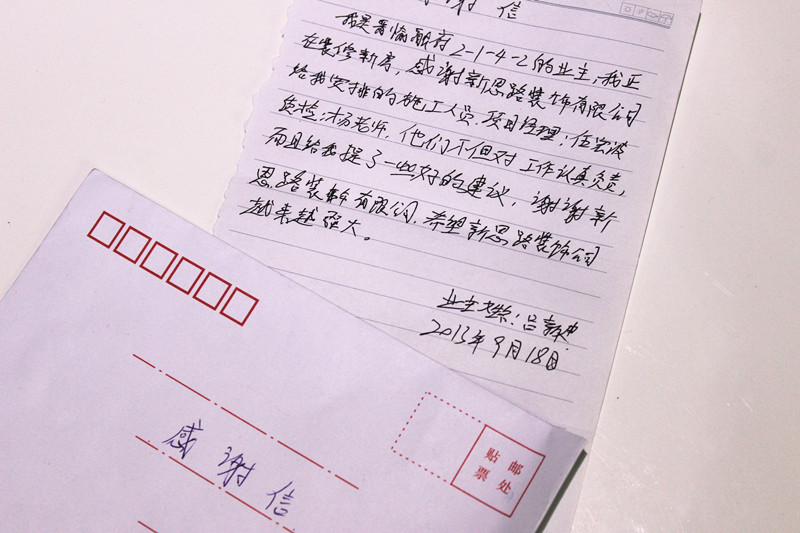 谢 信
我是署愉融府2-1-4-2的业主，我正
在装修新房，感谢新思路装饰有限公司
给我安排的施工人员，项目经理：任宏波
质检：杨老师，他们不但对工作认真负责，
而且给我提了一些好的建议，谢谢新
思路装饰有限公司，希望新思路装饰公司
越来越强大。
业主姓名：吕
2013年9月18日
感谢信
贴 邮
票 处